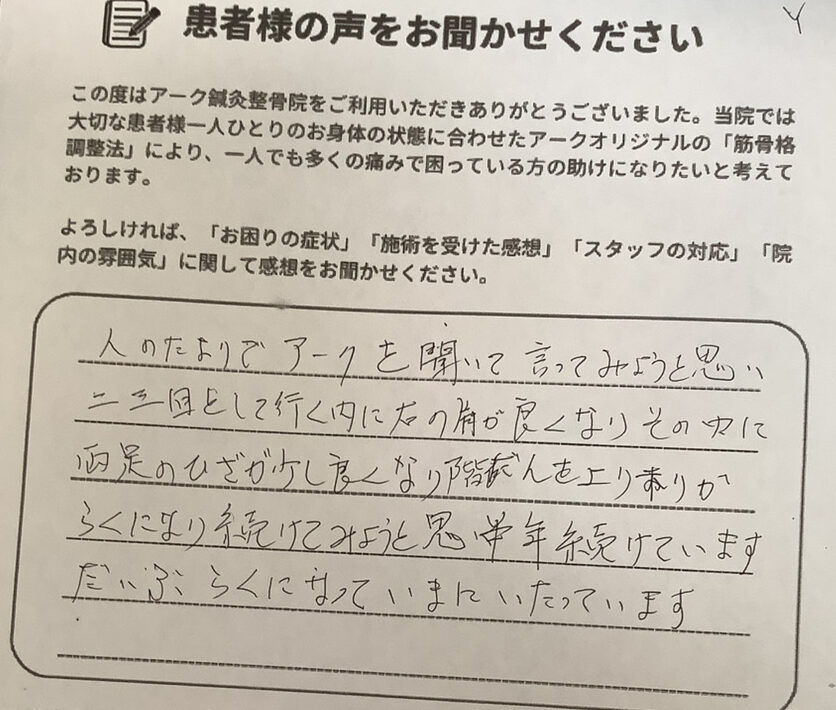 患者様の声をお聞かせください
Y
この度はアーク鍼灸整骨院をご利用いただきありがとうございました。当院では
大切な患者様一人ひとりのお身体の状態に合わせたアークオリジナルの「筋骨格
調整法」により、一人でも多くの痛みで困っている方の助けになりたいと考えて
おります。
よろしければ、「お困りの症状」「施術を受けた感想」「スタッフの対応」「院
内の雰囲気」に関して感想をお聞かせください。
人のたよりでアークを聞いて言ってみようと思い
二三回として行く内に右の肩が良くなりその中に
両足のひざが少し良くなり階だんを上り
らくになり続けてみようと思い半年続けています
だいぶらくになっていまにいたっています